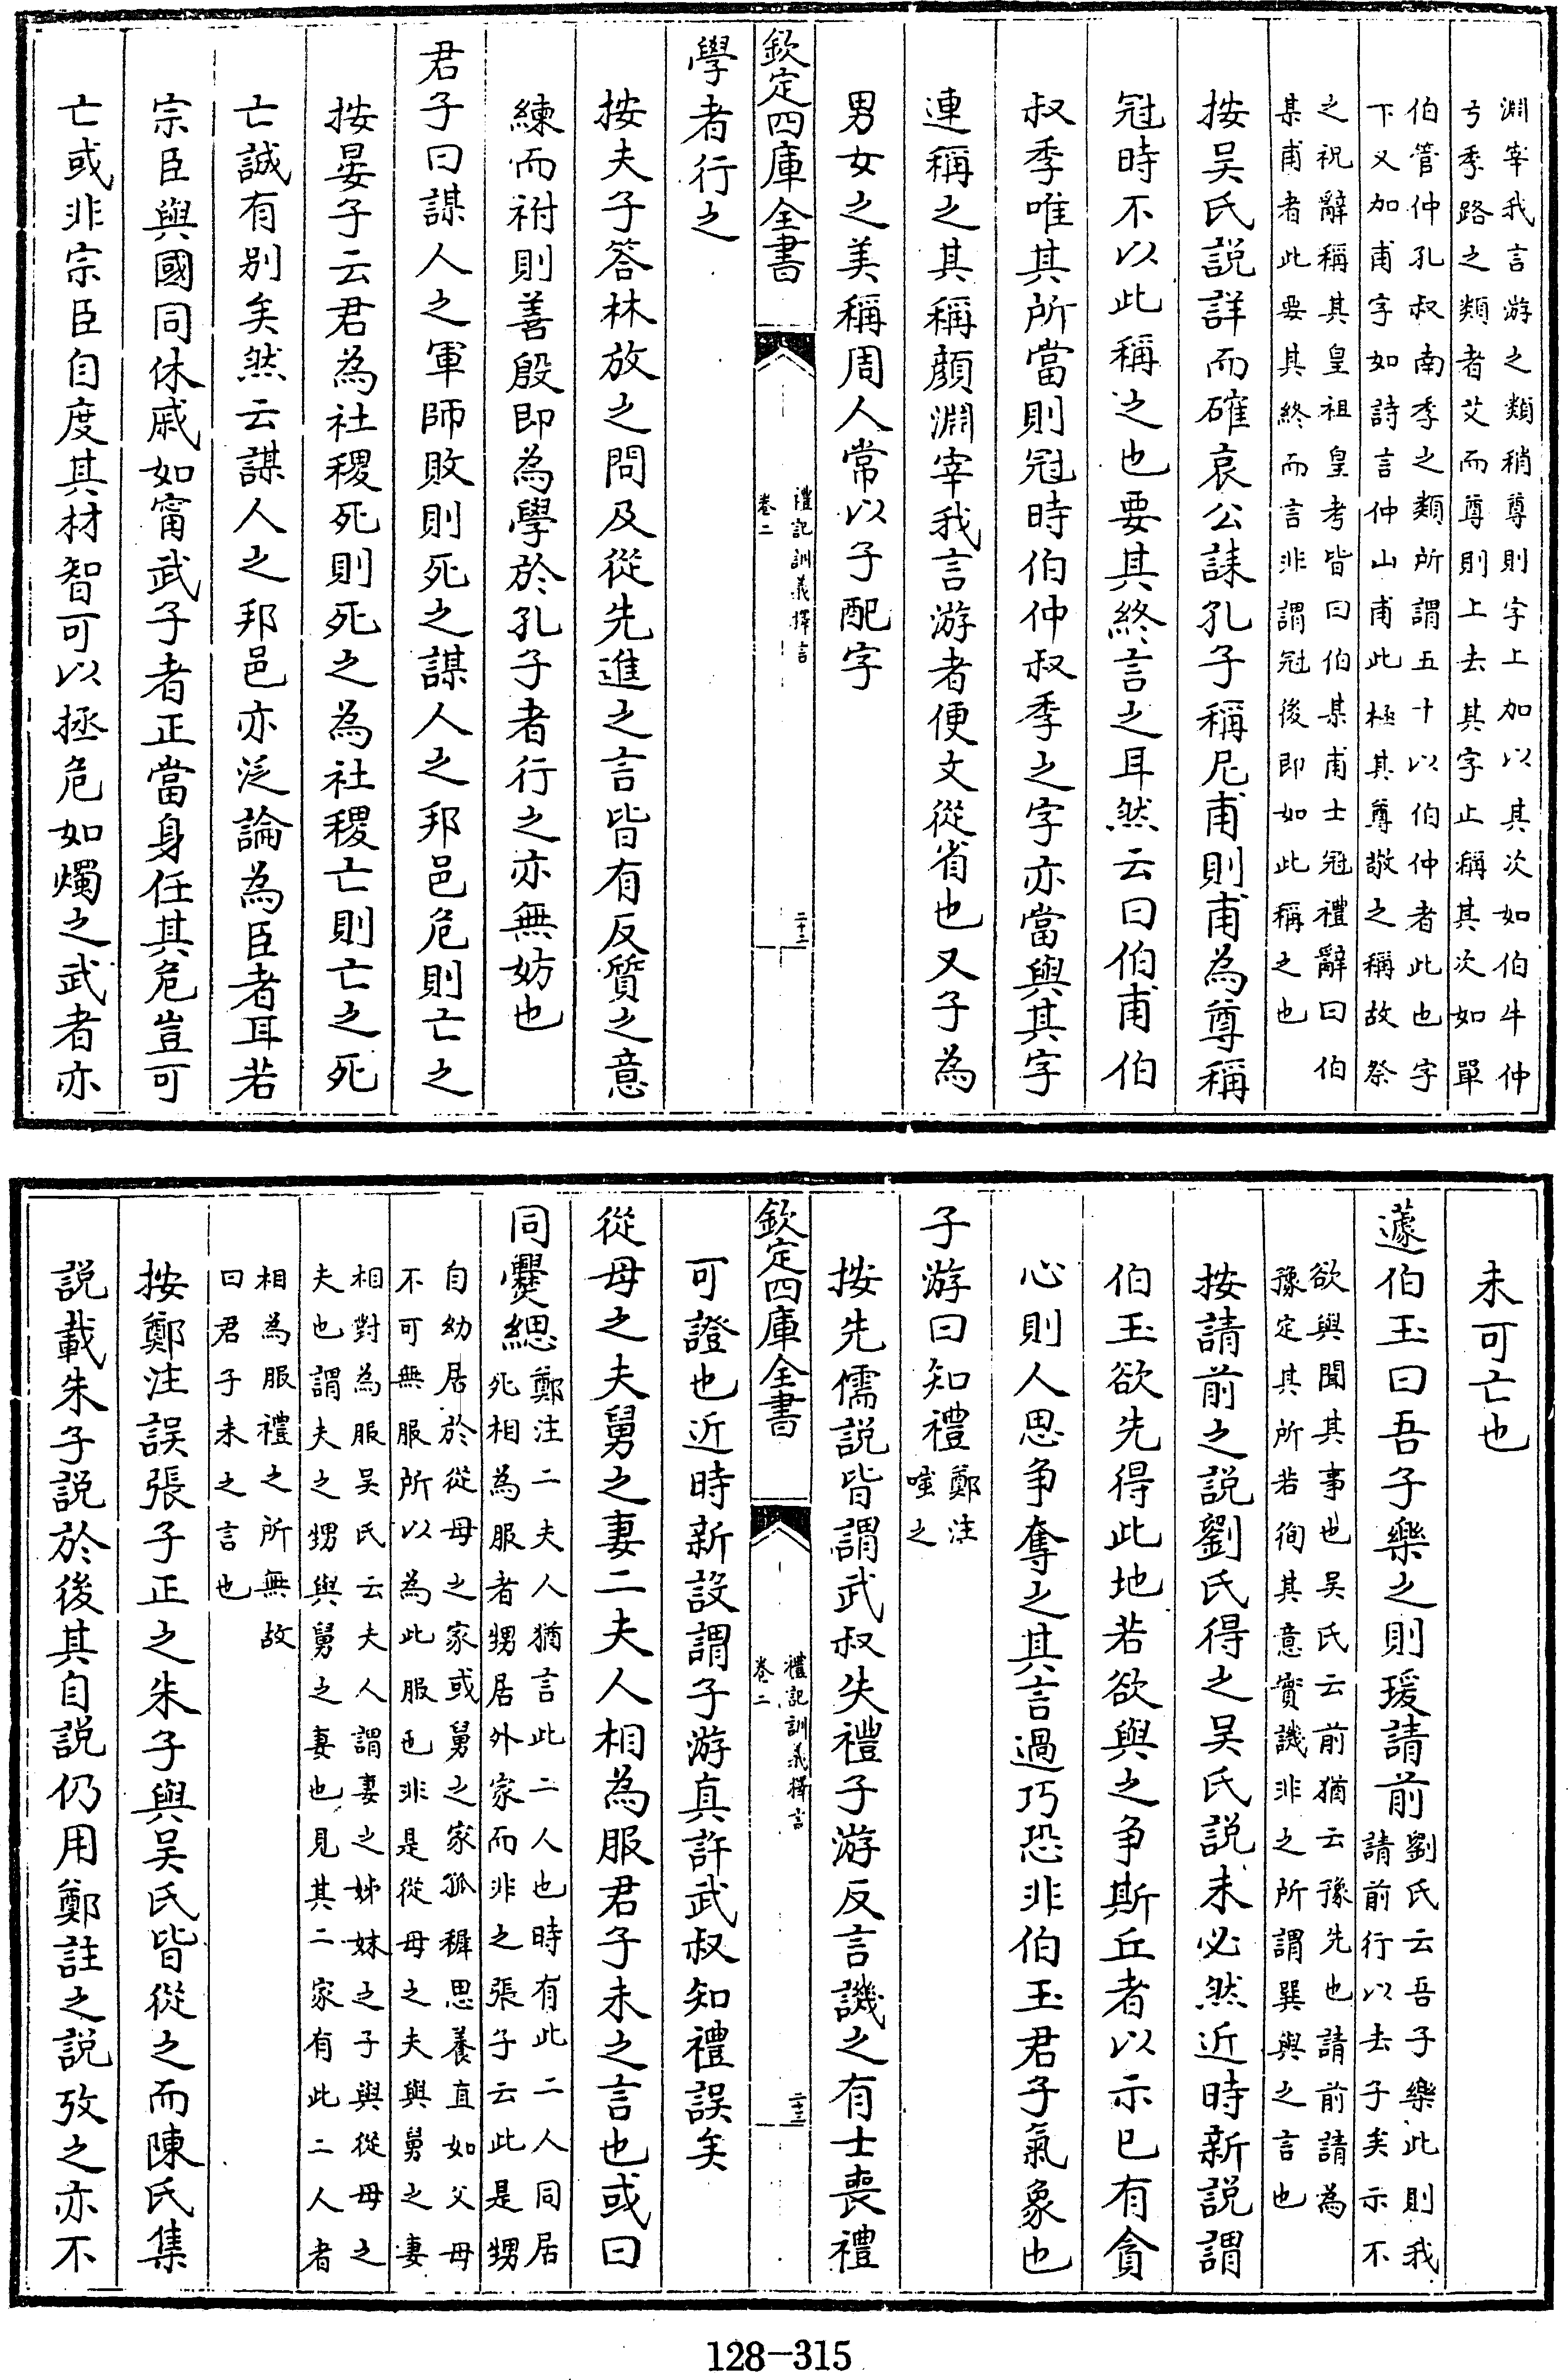 淵宰我言游之類稍尊則字上加以其次如伯牛仲
弓季路之類者艾而尊則上去其字止稱其次如單
伯管仲孔叔南季之類所謂五十以伯仲者此也字
下又加甫字如詩言仲山甫此極其尊敬之稱故祭
之祝辭稱其皇祖皇考皆曰伯某甫士冠禮辭曰伯
某甫者此要其終而言非謂冠後即如此稱之也
按吴氏説詳而確哀公誄孔子稱尼甫則甫為尊稱
冠時不以此稱之也要其終言之耳然云曰伯甫伯
叔季唯其所當則冠時伯仲叔季之字亦當與其字
連稱之其稱顔淵宰我言游者便文從省也又子為
男女之美稱周人常以子配字
欽定四庫全書
禮記訓義擇言
卷二
二十二
學者行之
按夫子答林放之問及從先進之言皆有反質之意
練而祔則善殷即為學於孔子者行之亦無妨也
君子曰謀人之軍師敗則死之謀人之邦邑危則亡之
按晏子云君為社稷死則死之為社稷亡則亡之死
亡誠有别矣然云謀人之邦邑亦泛論為臣者耳若
宗臣與國同休戚如甯武子者正當身任其危豈可
亡或非宗臣自度其材智可以拯危如燭之武者亦
未可亡也
蘧伯玉曰吾子樂之則瑗請前劉氏云吾子樂此則我
請前行以去子矣示不
欲與聞其事也吴氏云前猶云豫先也請前請為
豫定其所若徇其意實譏非之所謂巽與之言也
按請前之説劉氏得之吴氏説未必然近時新説謂
伯玉欲先得此地若欲與之争斯丘者以示已有貪
心則人思争奪之其言過巧恐非伯玉君子氣象也
子游曰知禮鄭注
嗤之
按先儒説皆謂武叔失禮子游反言譏之有士喪禮
欽定四庫全書
禮記訓義擇言
卷二
二十三
可證也近時新設謂子游真許武叔知禮誤矣
從母之夫舅之妻二夫人相為服君子未之言也或曰
同爨緦鄭注二夫人猶言此二人也時有此二人同居
死相為服者甥居外家而非之張子云此是甥
自幼居於從母之家或舅之家孤穉思養直如父母
不可無服所以為此服也非是從母之夫與舅之妻
相對為服吴氏云夫人謂妻之姊妹之子與從母之
夫也謂夫之甥與舅之妻也見其二家有此二人者
相為服禮之所無故
曰君子未之言也
按鄭注誤張子正之朱子與吴氏皆從之而陳氏集
説載朱子説於後其自説仍用鄭註之説攷之亦不
128-315